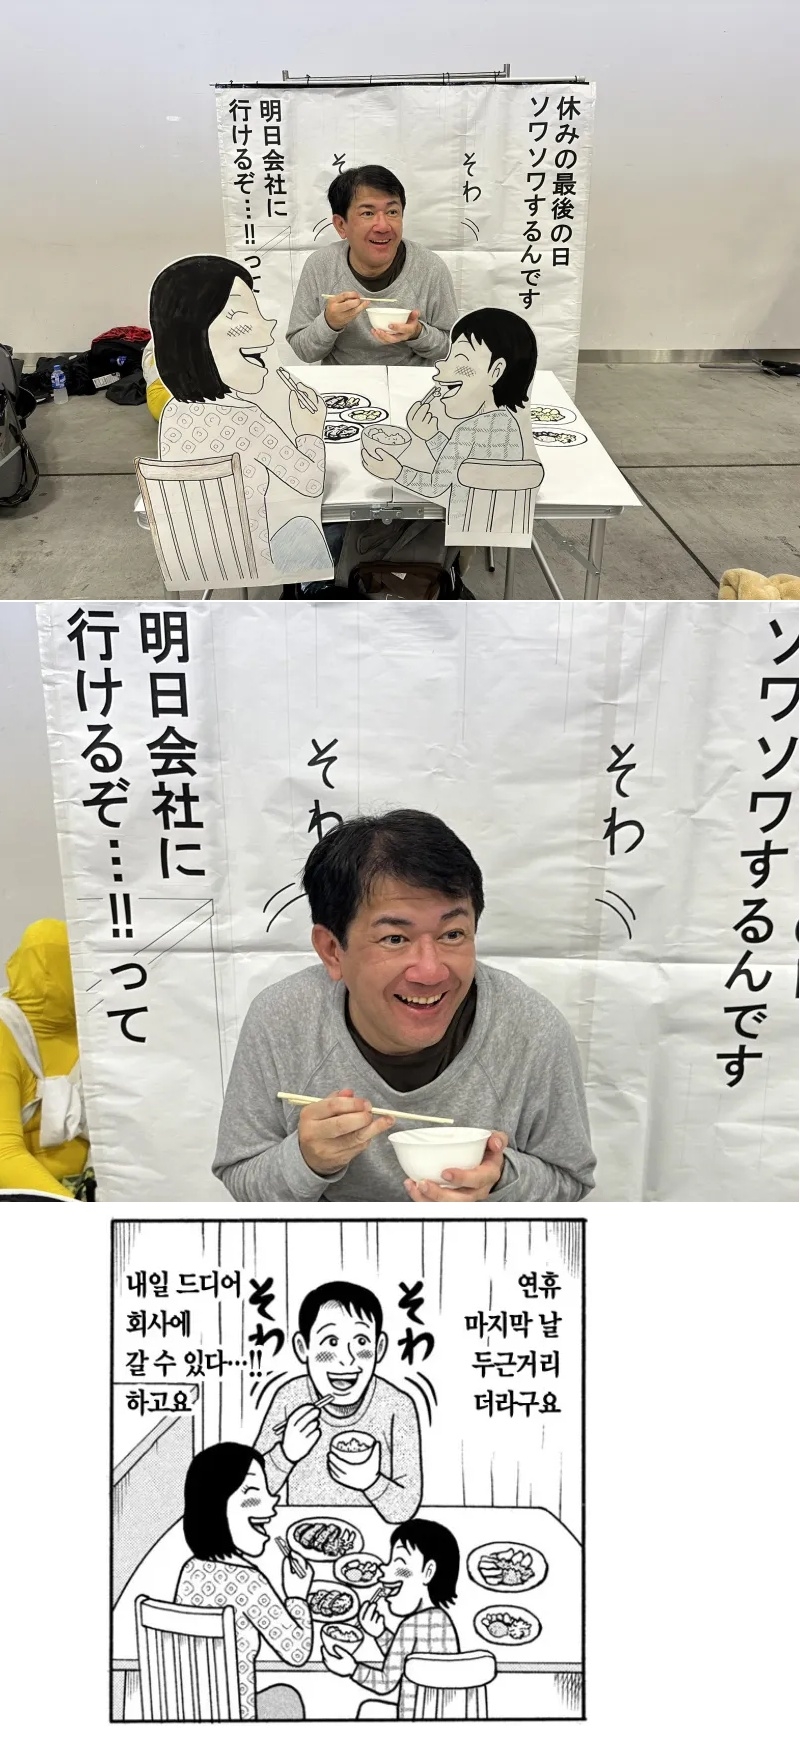 休みの最後の日
ソワソワするんです
そわ
そ
明日会社に
行けるぞ…!!って
ソワソワするんです
そわ
そわ
明日会社に
行けるぞ…!!って
연휴
마지막 날
두근거리
더라구요
そわ
そわ
내일 드디어
회사에
갈 수 있다…!!
하고요